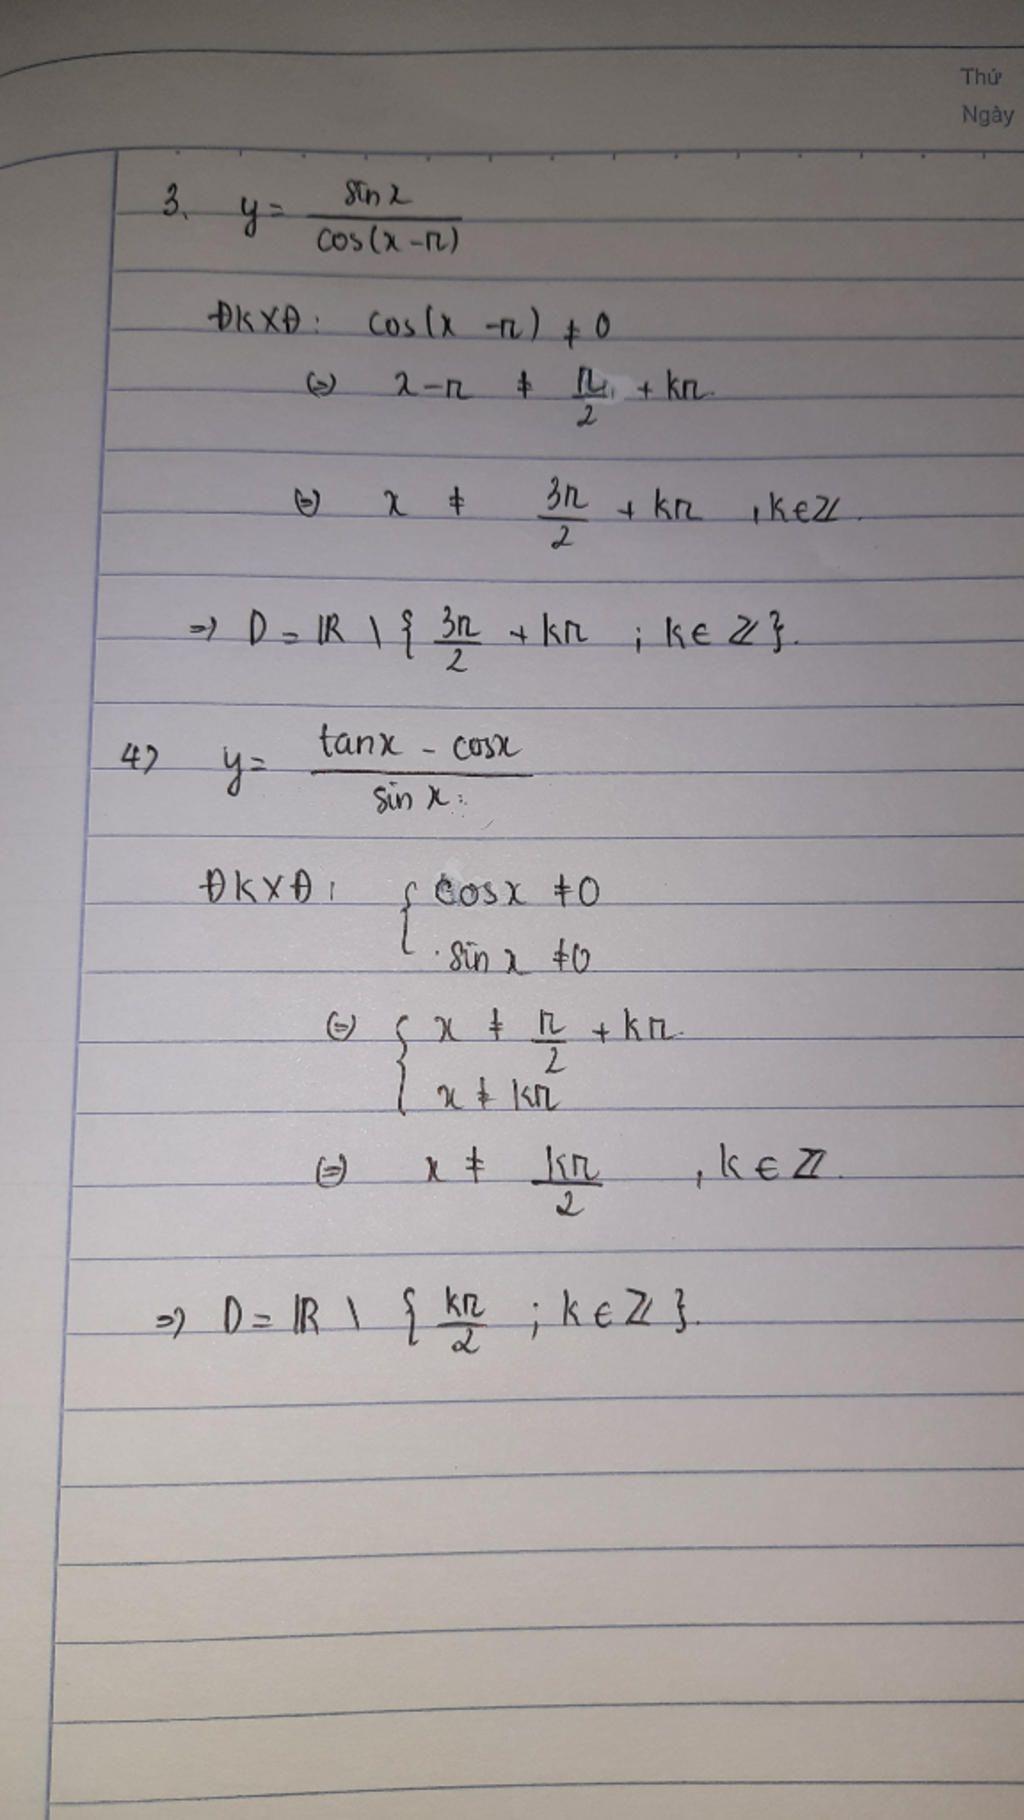 Thứ
Ngày
3. y = sin x / cos(x - π)
ĐKXĐ: cos(x - π) ≠ 0
(=) x - π ≠ π/2 + kπ.
(=) x ≠ 3π/2 + kπ , k ∈ Z.
=> D = R \ { 3π/2 + kπ ; k ∈ Z }.
4) y = tanx - cosx / sin x
ĐKXĐ: { cosx ≠ 0
sin x ≠ 0
(=) { x ≠ π/2 + kπ.
x ≠ kπ
(=) x ≠ kπ/2 , k ∈ Z.
=> D = R \ { kπ/2 ; k ∈ Z }.